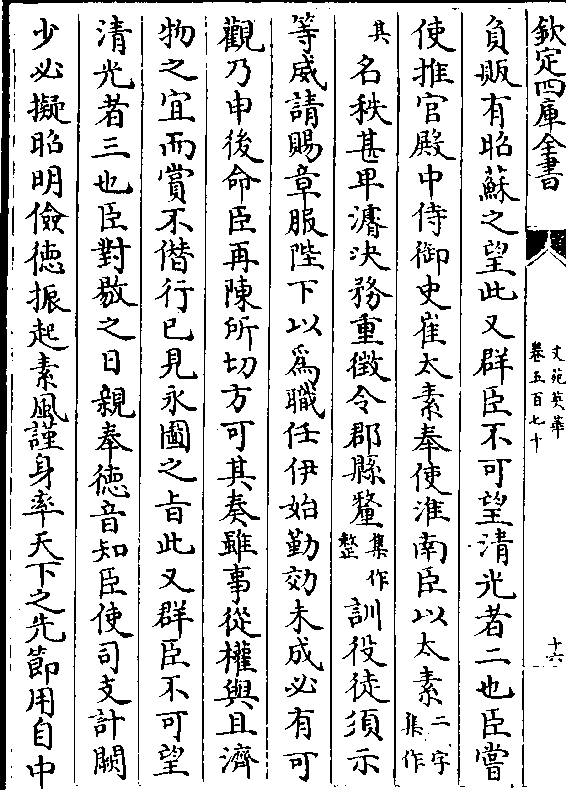 欽定四庫全書
文苑英華
卷五百七十
十六
負販有昭蘇之望此又群臣不可望清光者二也臣嘗
使推官殿中侍御史崔太素奉使淮南臣以太素二字集作
其名秩甚卑濬決務重徵令郡縣釐集作整訓役徒須示
等威請賜章服陛下以為職任伊始勤効未成必有可
觀乃申後命臣再陳所切方可其奏雖事從權輿且濟
物之宜而賞不僭行已見永圖之旨此又群臣不可望
清光者三也臣對敭之日親奉徳音知臣使司支計闕
少必擬昭明儉徳振起素風謹身率天下之先節用自中